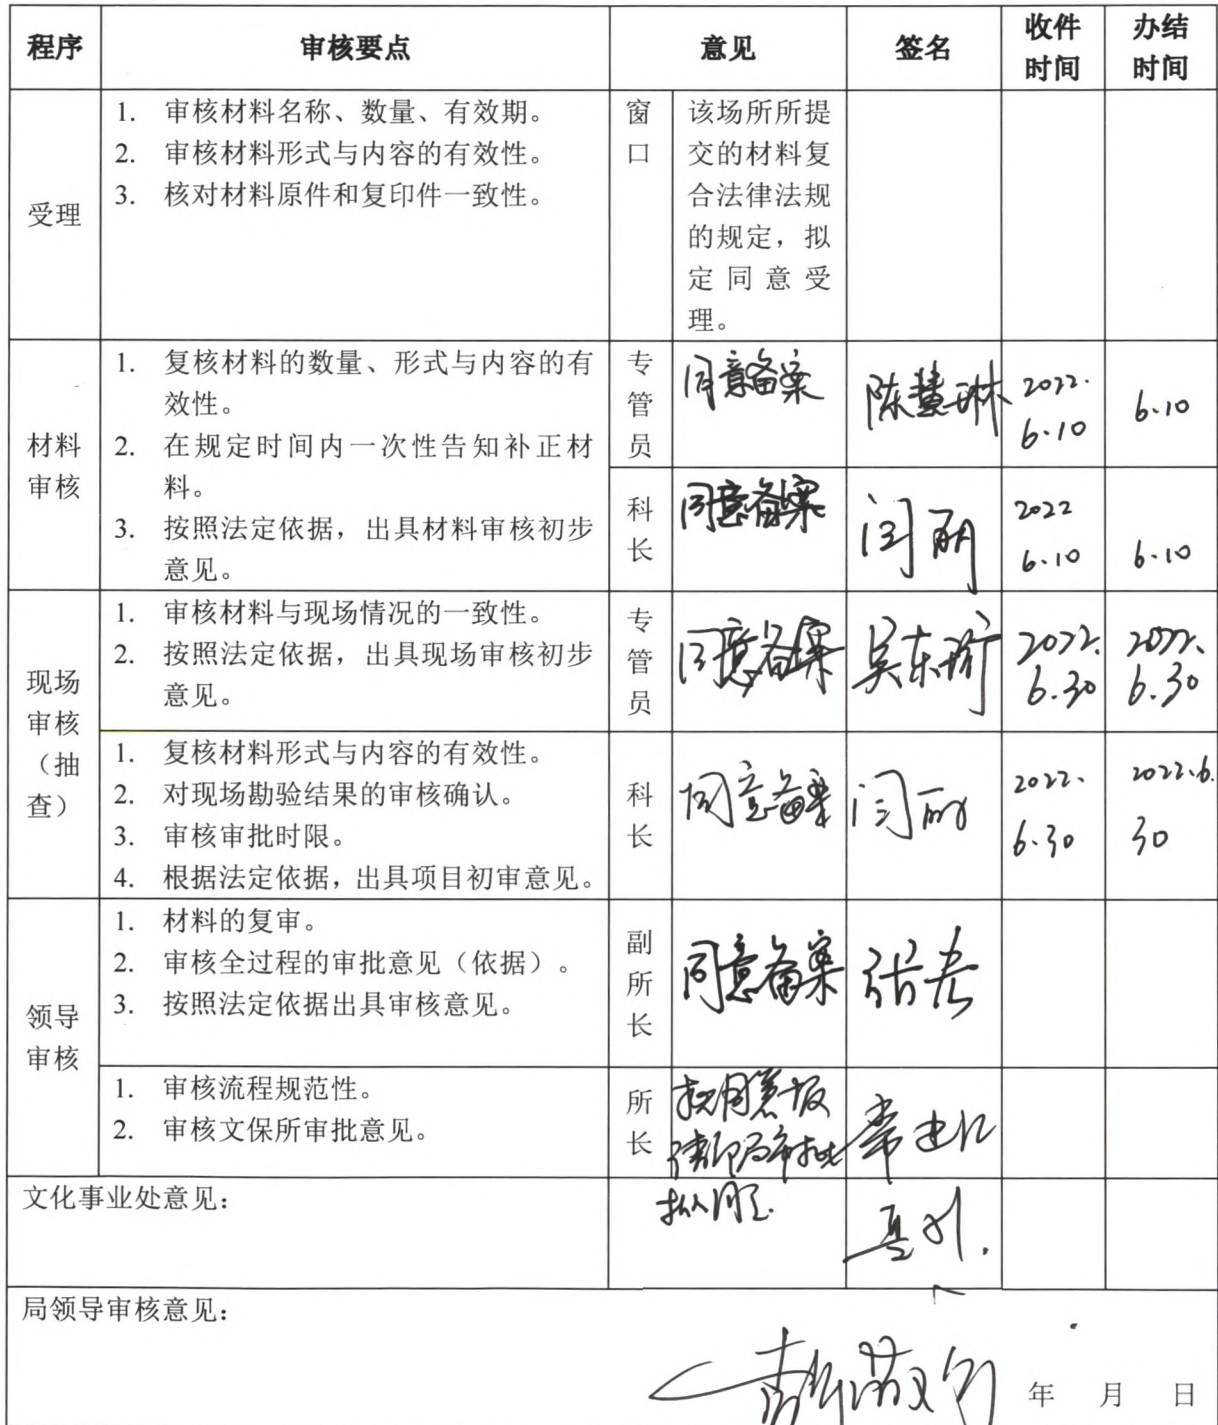 程序 审核要点 意见 签名 收件时间 办结时间
受理
1. 审核材料名称、数量、有效期。
2. 审核材料形式与内容的有效性。
3. 核对材料原件和复印件一致性。
窗口
该场所所提
交的材料复
合法律法规
的规定，拟
定同意受
理。
材料
审核
1. 复核材料的数量、形式与内容的有
效性。
2. 在规定时间内一次性告知补正材
料。
3. 按照法定依据，出具材料审核初步
意见。
专管员
同意备案
陈慧琳
2022.
6.10
6.10
科长
同意备案
闫丽
2022
6.10
6.10
现场
审核
（抽
查）
1. 审核材料与现场情况的一致性。
2. 按照法定依据，出具现场审核初步
意见。
专管员
同意备案
2022.
6.30
2022.
6.30
1. 复核材料形式与内容的有效性。
2. 对现场勘验结果的审核确认。
3. 审核审批时限。
4. 根据法定依据，出具项目初审意见。
科长
同意备案
闫丽
2022.
6.30
2022.6.
30
领导
审核
1. 材料的复审。
2. 审核全过程的审批意见（依据）。
3. 按照法定依据出具审核意见。
副所长
同意备案
1. 审核流程规范性。
2. 审核文保所审批意见。
所长
文化事业处意见：
拟同意.
局领导审核意见：
年 月 日